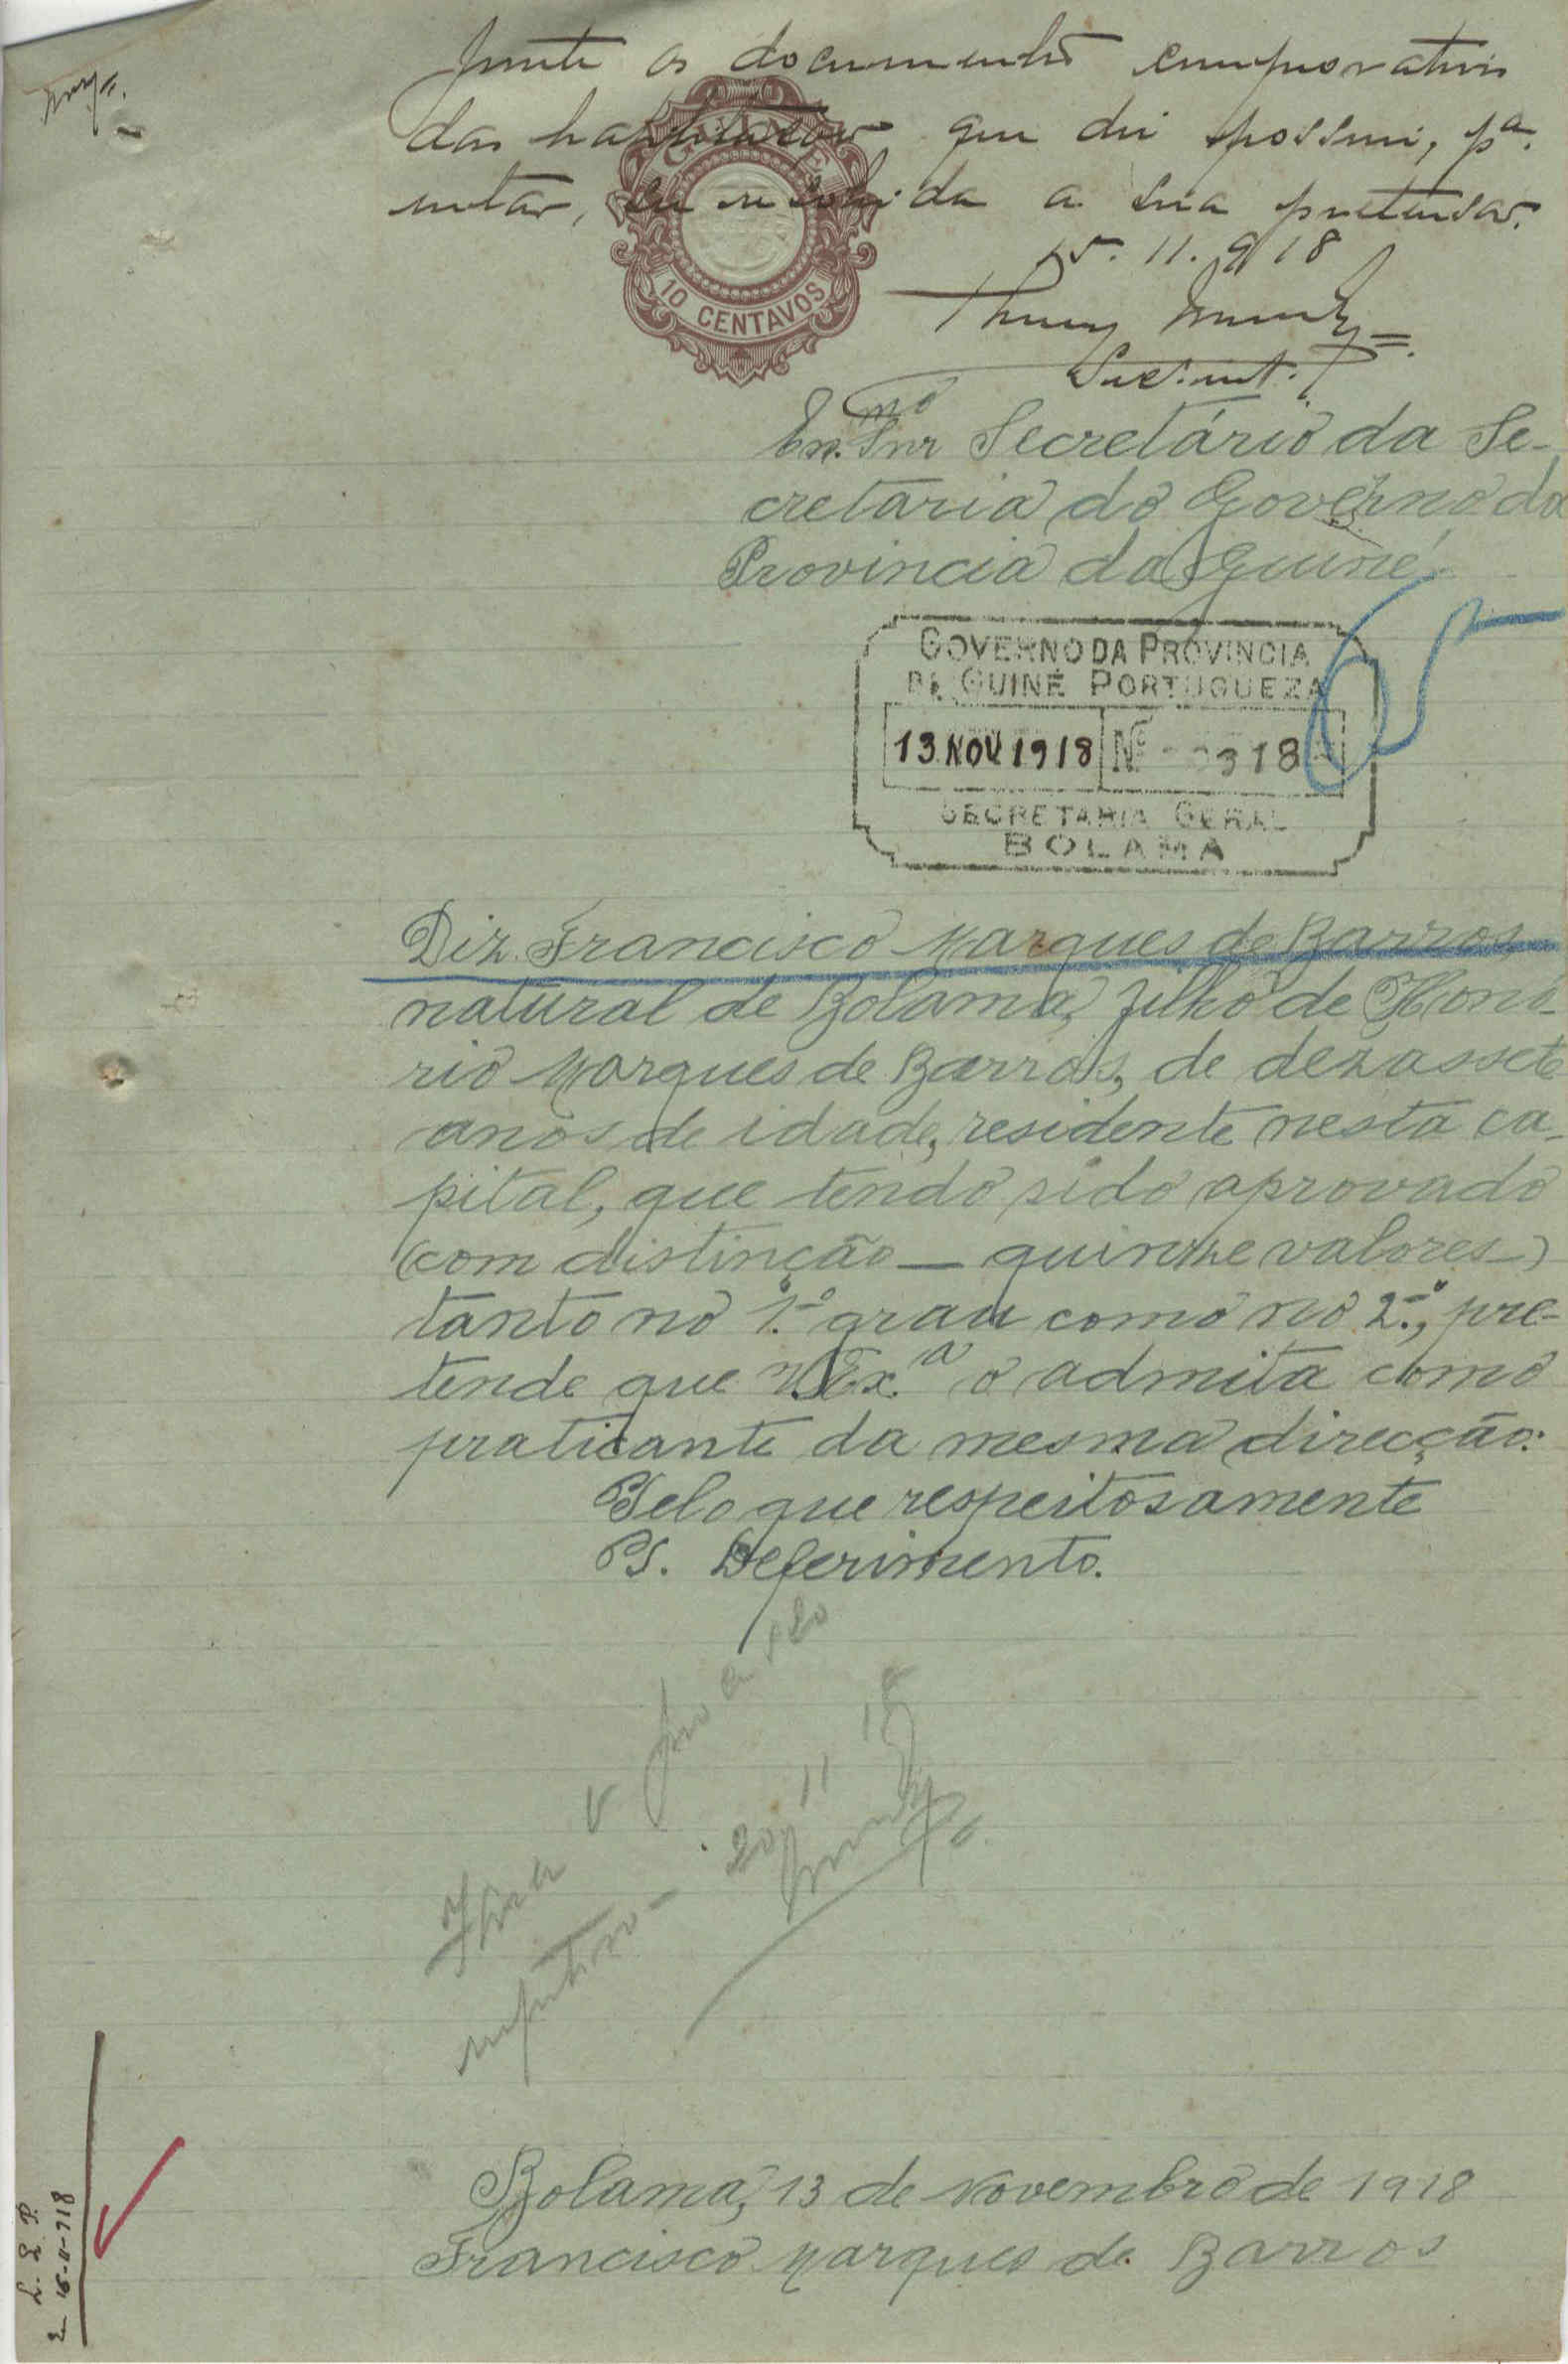 Junte os documentos comprovativos
das habilitações que diz possuir, pª.
então, ser resolvida a sua pretensão.
15.11.918
GUINÉ
10 CENTAVOS
Ex.mo Snr Secretário da Se-
cretaria do Governo da
Provincia da Guiné.
GOVERNO DA PROVINCIA
DE GUINÉ PORTUGUEZA
13 NOV 1918 Nº 318
SECRETARIA GERAL
BOLAMA
Diz Francisco Marques de Barros,
natural de Bolama, filho de Honó-
rio Marques de Barros, de dezassete
anos de idade, residente nesta ca-
pital, que tendo sido aprovado
(com distinção — quinze valores)
tanto no 1.º grau como no 2.º, pre-
tende que V. Ex.ª o admita como
praticante da mesma direcção.
Pelo que respeitosamente
P. Deferimento.
20 11 18
Bolama, 13 de Novembro de 1918
Francisco Marques de Barros